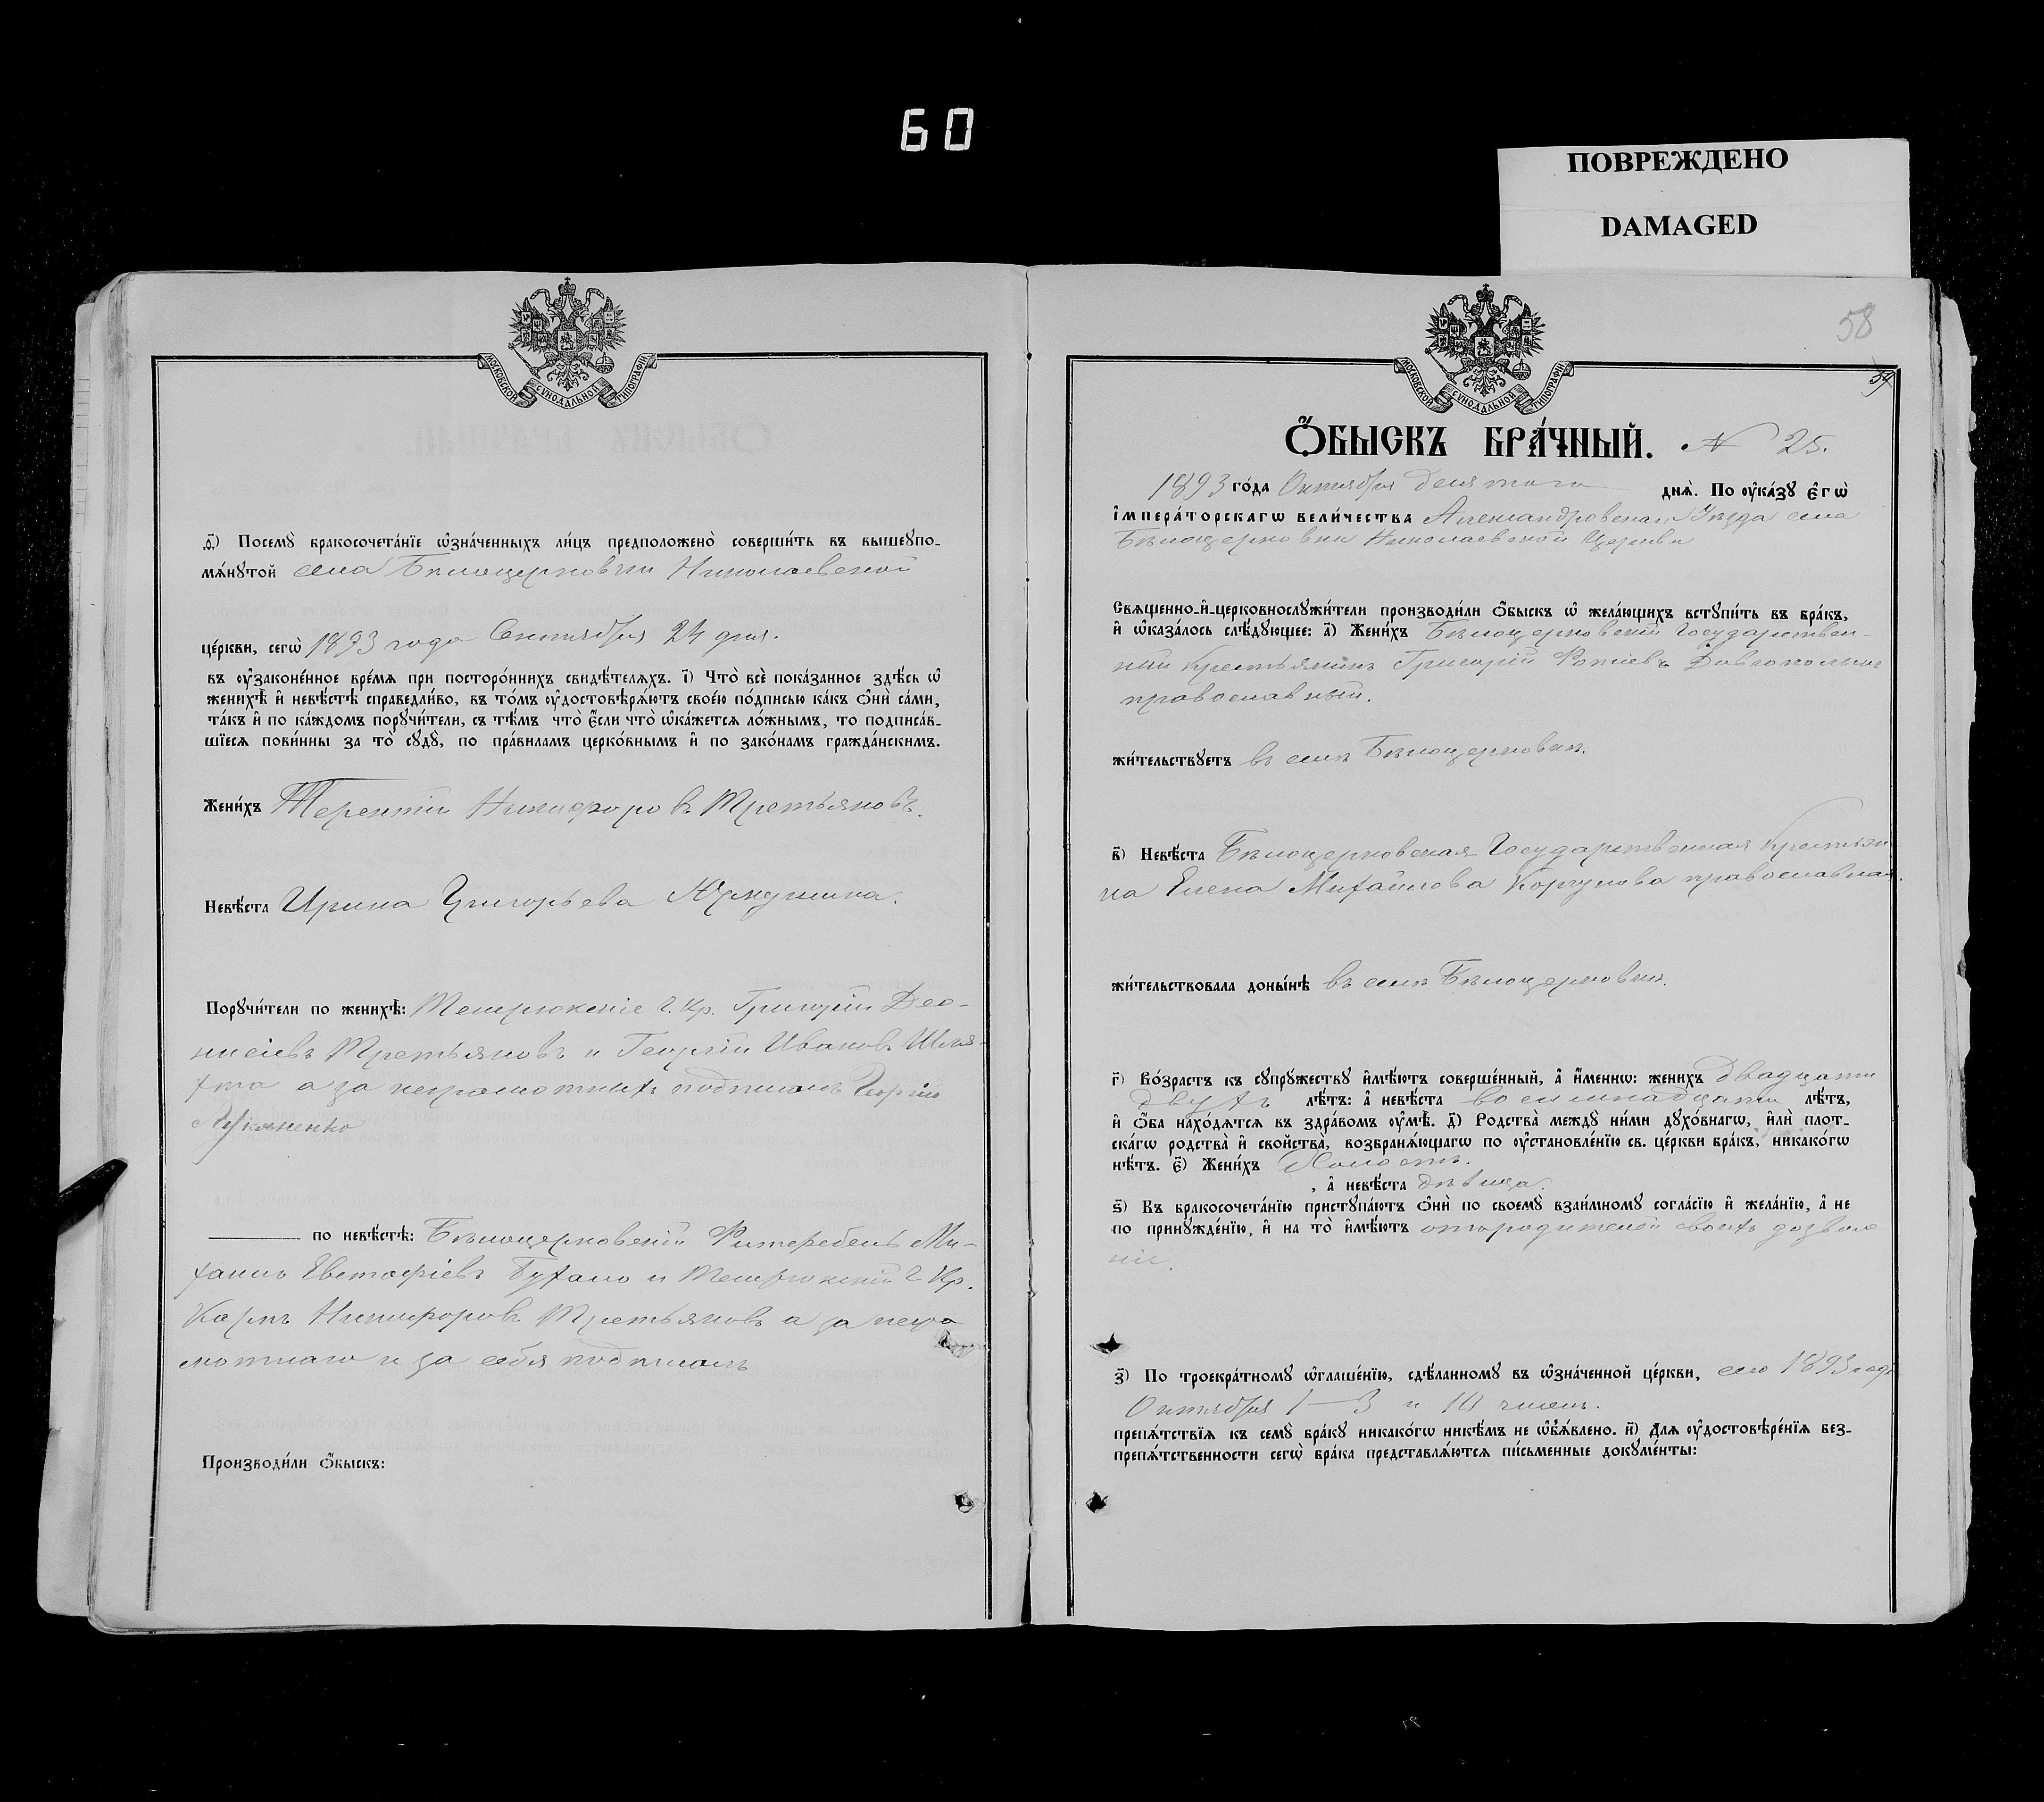 60
ПОВРЕЖДЕНО
DAMAGED
МОСКОВСКОЙ СѴНОДАЛЬНОЙ ТИПОГРАФІИ
ѳ҃) Посемꙋ бракосочета́нїе ѡ҆зна́ченныхъ ли́цъ предположено̀ соверши́ть въ вышеꙋпо-
мѧ́нꙋтой села Бѣлоцерковки Николаевской
це́ркви, сегѡ̀ 1893 года Сентября 24 дня.
въ ᲂу҆зако́ненное вре́мѧ при посторо́ннихъ свидѣ́телѧхъ. і҃) Что̀ всѐ пока́занное здѣ́сь ѡ҆
женихѣ̀ и҆ невѣ́стѣ справедли́во, въ то́мъ ᲂу҆достовѣрѧ́ютъ свое́ю по́дписью ка́къ ѻ҆нѝ са́ми,
та́къ и҆ по ка́ждомъ порꙋчи́тели, съ тѣ́мъ что̀ є҆́сли что̀ ѡ҆ка́жетсѧ ло́жнымъ, то подписа́в-
шїесѧ пови́нны за то̀ сꙋдꙋ̀, по пра́виламъ церко́внымъ и҆ по зако́намъ гражда́нскимъ.
Жени́хъ Терентій Никифоровъ Третьяковъ.
Невѣ́ста Ирина Григорьева
Порꙋчи́тели по женихѣ̀: Темрюкскіе Г. Кр. Григорій Део-
нисіевъ Третьяковъ и Георгій Ивановъ Шля-
хта а за неграмотныхъ подписалъ Георгій
Лукяненко
по невѣ́стѣ: Бѣлоцерковскій Михаилъ Евстафіевъ Бухало и Темрюкскій Г. Кр.
Карпъ Никифоровъ Третьяковъ а за негра
мотнаго и за себя подписалъ
Производи́ли ѻ҆́быскъ:
58
МОСКОВСКОЙ СѴНОДАЛЬНОЙ ТИПОГРАФІИ
Ѻ҆́БЫСКЪ БРА́ЧНЫЙ. № 25.
1893 го́да Октября десятого днѧ̀. По ᲂу҆ка́зꙋ є҆гѡ̀
і҆мпера́торскагѡ вели́чества Александровскаго Уѣзда села
Бѣлоцерковки Николаевской Церкви
Свѧщенно-и҆-церковнослꙋжи́тели производи́ли ѻ҆́быскъ ѡ҆ жела́ющихъ встꙋпи́ть въ бра́къ,
и҆ ѡ҆каза́лось слѣ́дꙋющее: а҃) Жени́хъ Бѣлоцерковскій Государствен-
ный Крестьянинъ Григорій Фотіевъ Довгополый
православный.
жи́тельствꙋетъ въ селѣ Бѣлоцерковкѣ.
в҃) Невѣ́ста Бѣлоцерковская Государственная Крестьян
ка Елена Михайлова Коргунова православная.
жи́тельствовала доны́нѣ въ селѣ Бѣлоцерковкѣ.
г҃) Во́зрастъ къ сꙋпрꙋ́жествꙋ и҆мѣ́ютъ соверше́нный, а҆ и҆́меннѡ: жени́хъ двадцати
двухъ лѣ́тъ: а҆ невѣ́ста восемнадцати лѣ́тъ,
и҆ ѻ҆́ба нахо́дѧтсѧ въ здра́вомъ ᲂу҆мѣ̀. д҃) Родства̀ междꙋ̀ ни́ми дꙋхо́внагѡ, и҆лѝ плот-
ска́гѡ родства̀ и҆ свойства̀, возбранѧ́ющагѡ по ᲂу҆становле́нїю св. це́ркви бра́къ, никако́гѡ
нѣ́тъ. є҃) Жени́хъ Холостъ.
, а҆ невѣ́ста дѣвица.
ѕ҃) Къ бракосочета́нїю пристꙋпа́ютъ ѻ҆нѝ по своемꙋ̀ взаи́мномꙋ согла́сїю и҆ жела́нїю, а҆ не
по принꙋжде́нїю, и҆ на то̀ и҆мѣ́ютъ отъ родителей своихъ дозволе
ніе.
з҃) По троекра́тномꙋ ѡ҆глаше́нїю, сдѣ́ланномꙋ въ ѡ҆зна́ченной це́ркви, сего 1893 года
Октября 1 — 3 и 10 чиселъ.
препѧ́тствїѧ къ семꙋ̀ бра́кꙋ никако́гѡ никѣ́мъ не ѡ҆б̾ѧ́влено. и҃) Длѧ ᲂу҆достовѣре́нїѧ без-
препѧ́тственности сегѡ̀ бра́ка представлѧ́ютсѧ пи́сьменные докꙋме́нты: